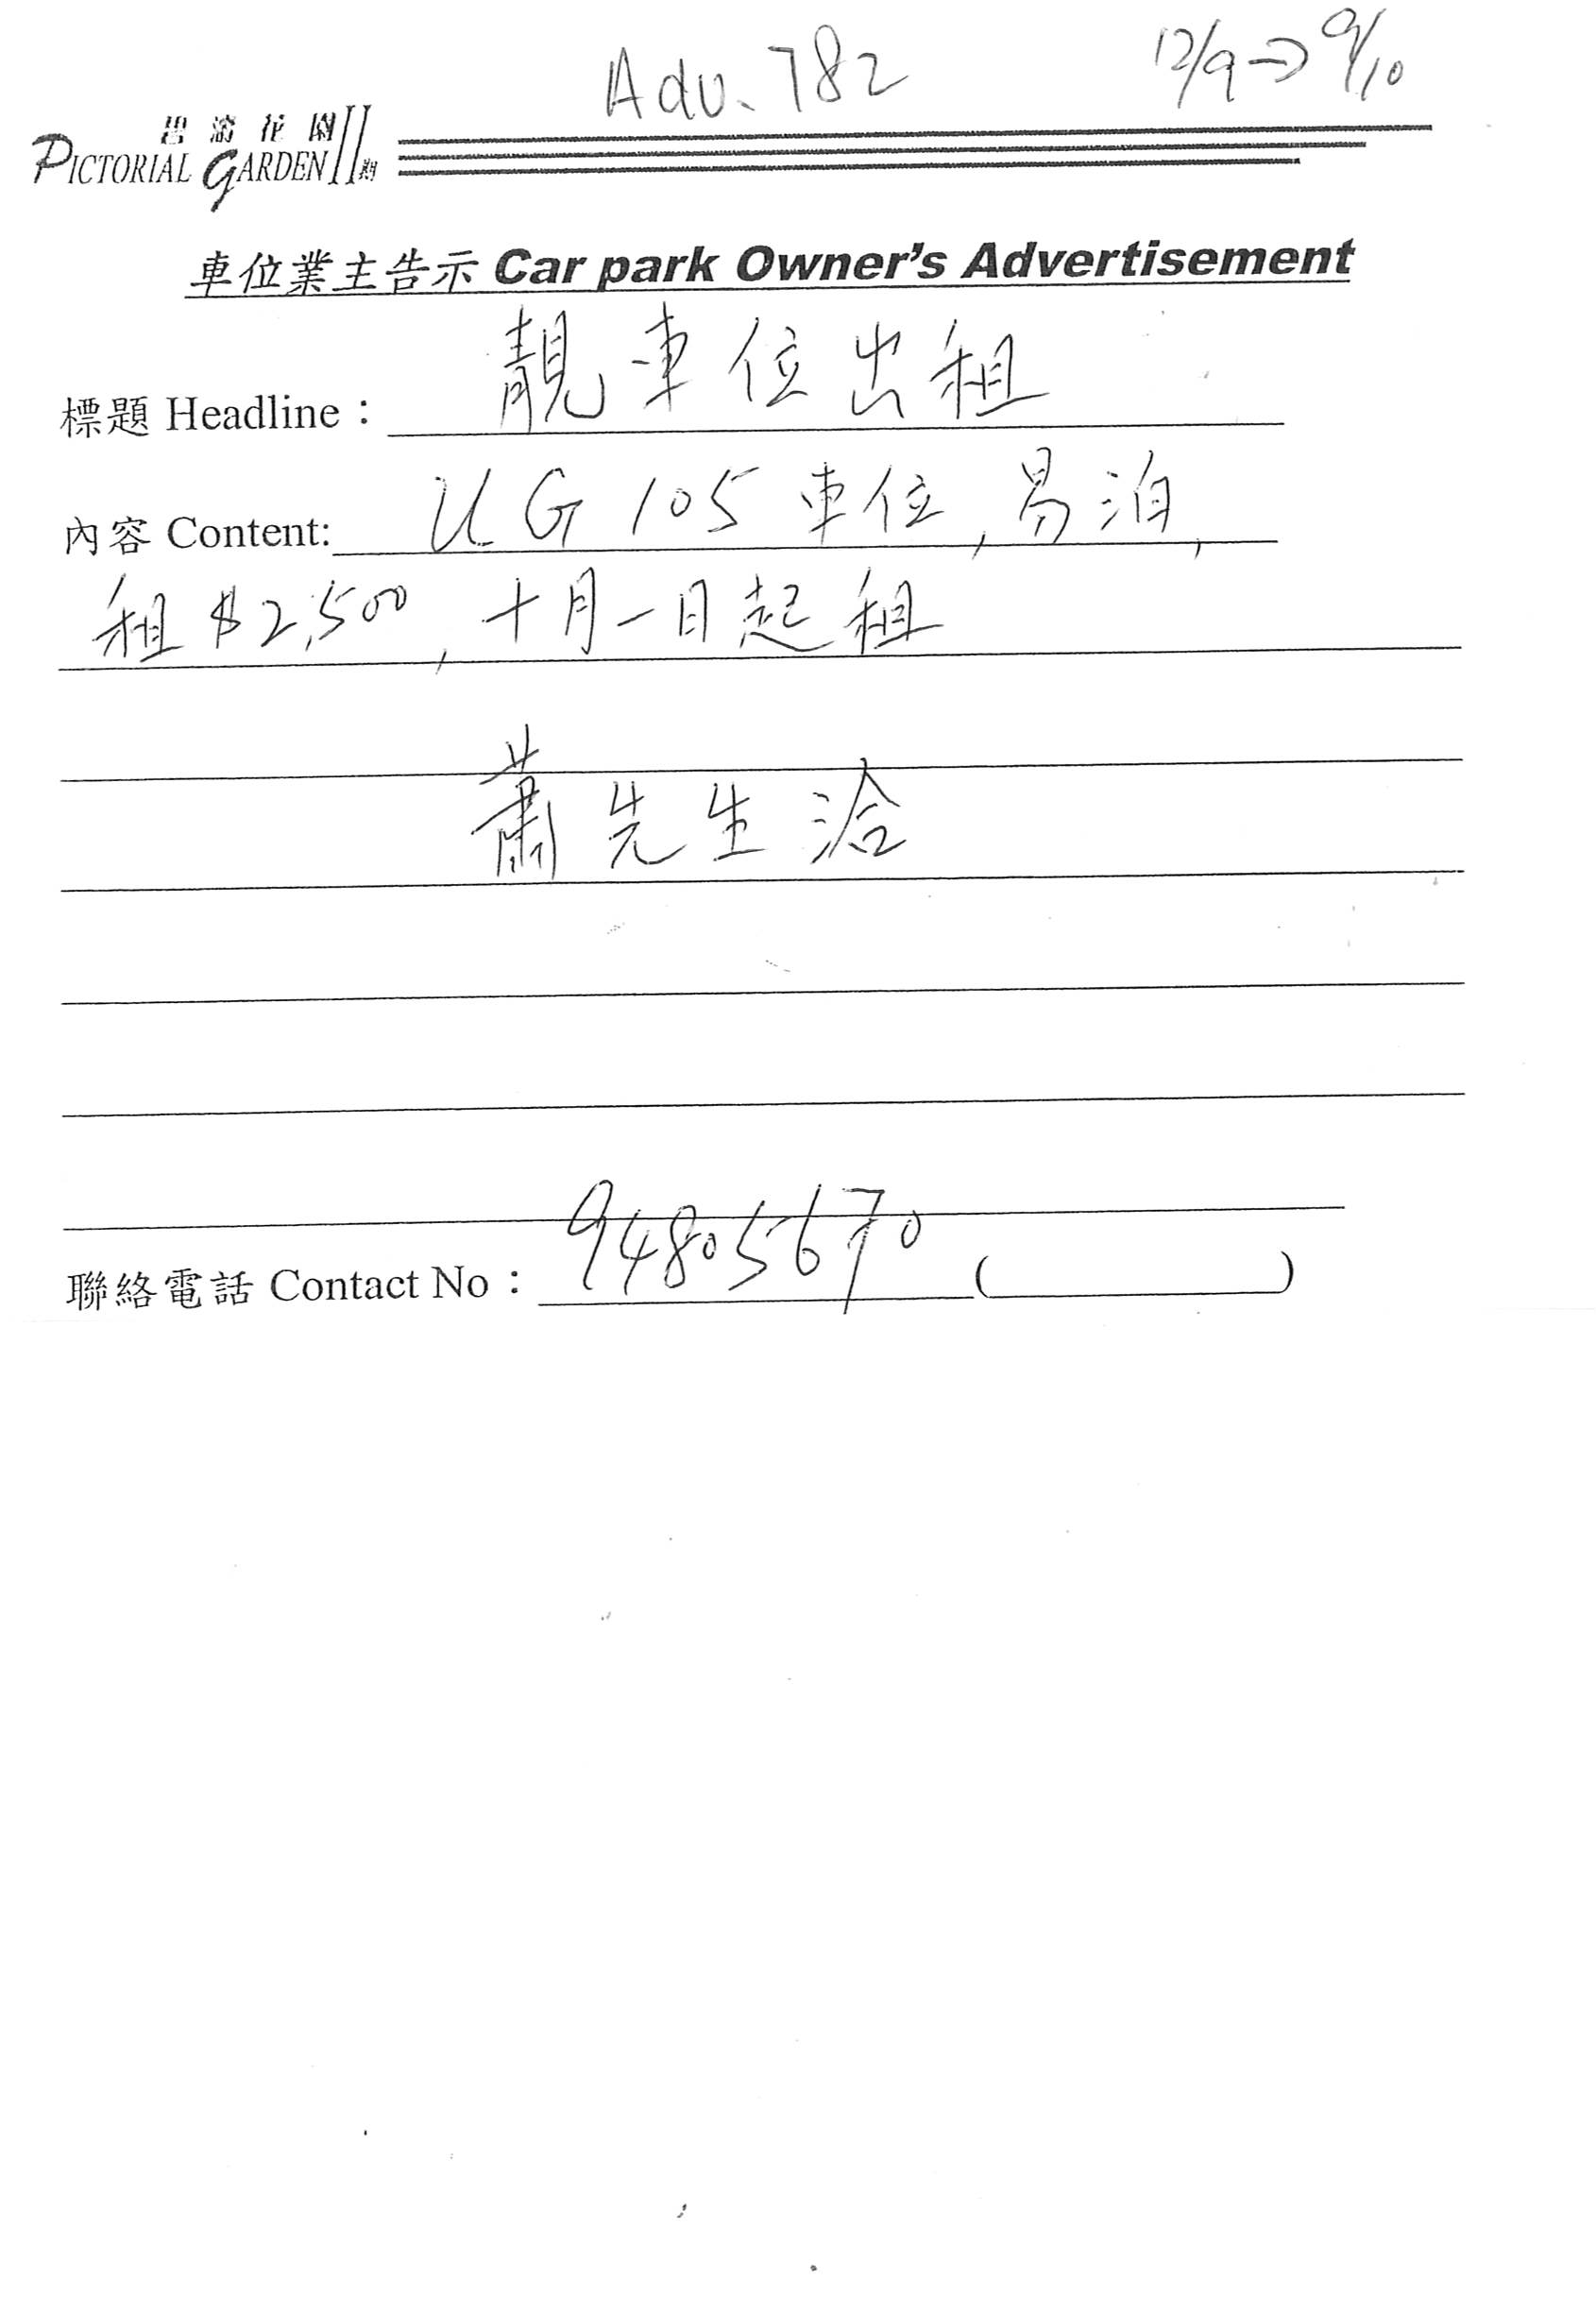 Adv. 782
12/9 → 9/10
碧濤花園
PICTORIAL GARDEN II 期
車位業主告示 Car park Owner's Advertisement
標題 Headline: 靚車位出租
內容 Content: UG 105 車位, 易泊,
租 $2,500, 十月一日起租
蕭先生洽
聯絡電話 Contact No: 94805670 ( )